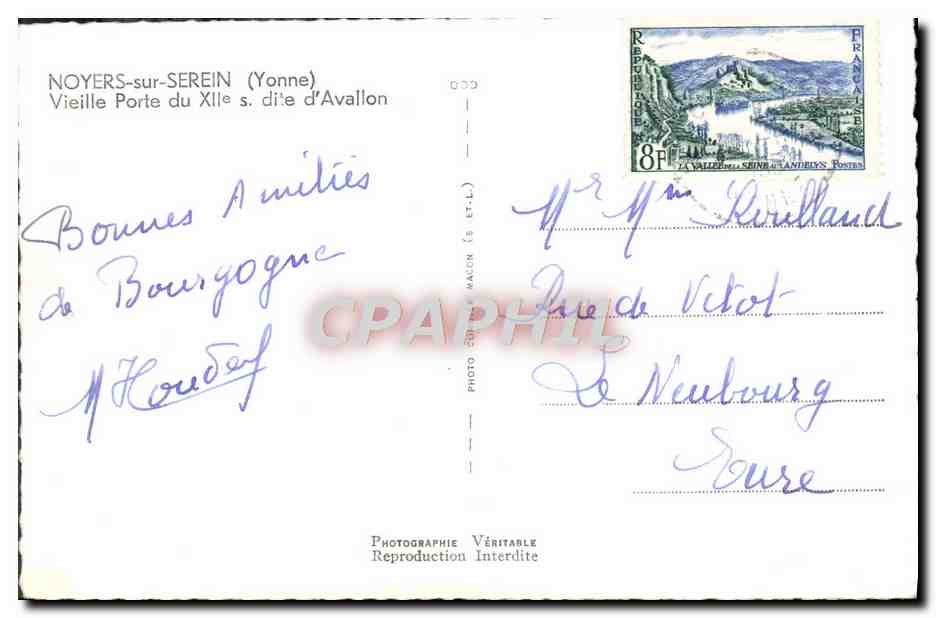 NOYERS-sur-SEREIN (Yonne)
Vieille Porte du XIIe s. dite d'Avallon
RÉPUBLIQUE
FRANÇAISE
8F
LA VALLÉE DE LA SEINE AUX ANDELYS POSTES
Bonnes Amitiés
de Bourgogne
M
Mr Mm Roulland
Rue de Vitot
Le Neubourg
Eure
CPAPHIL
PHOTO MACON (S. ET-L.)
PHOTOGRAPHIE VÉRITABLE
Reproduction Interdite